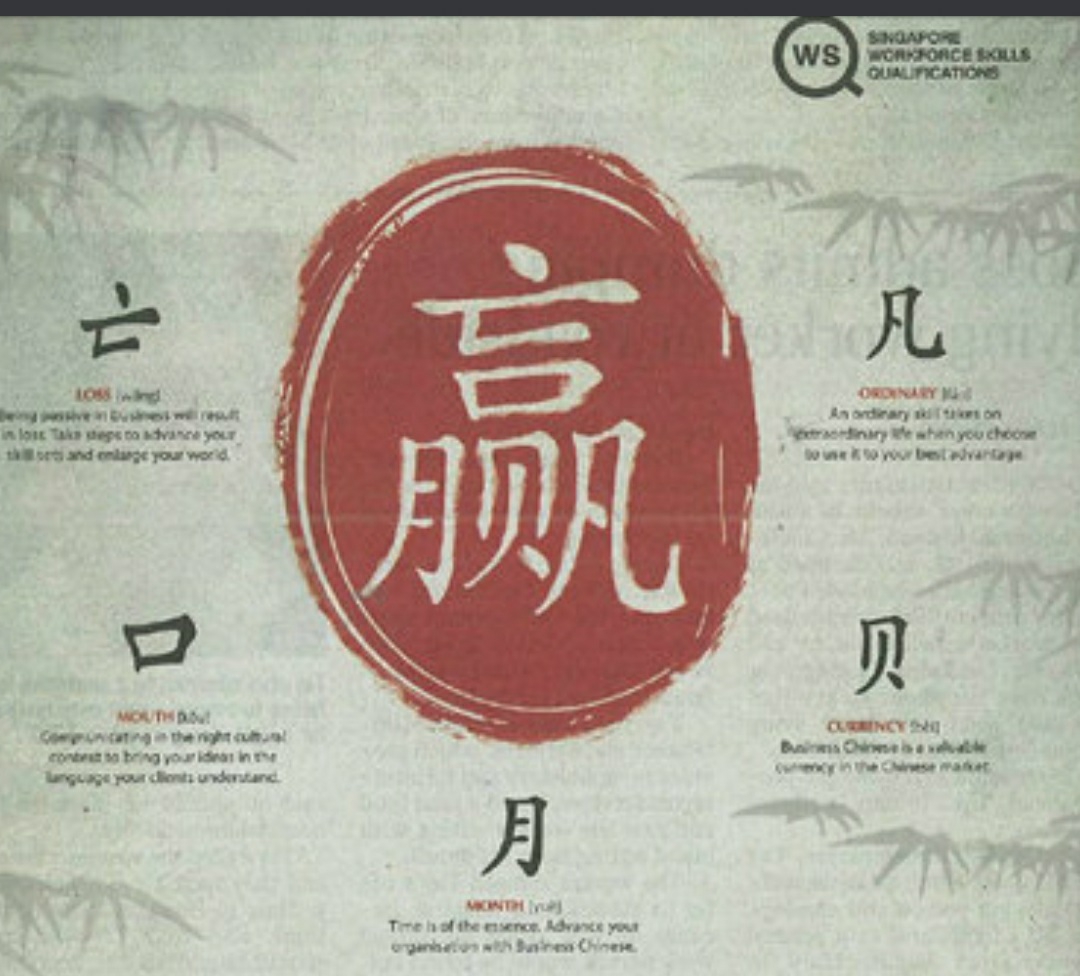 WS
SINGAPORE
WORKFORCE SKILLS
QUALIFICATIONS
赢
亡
LOSS [wáng]
Being passive in business will result
in loss. Take steps to advance your
skill sets and enlarge your world.
凡
ORDINARY
An ordinary skill takes on
extraordinary life when you choose
to use it to your best advantage.
口
MOUTH [kǒu]
Communicating in the right cultural
context to bring your ideas in the
language your clients understand.
贝
CURRENCY [bèi]
Business Chinese is a valuable
currency in the Chinese market.
月
MONTH [yuè]
Time is of the essence. Advance your
organisation with Business Chinese.